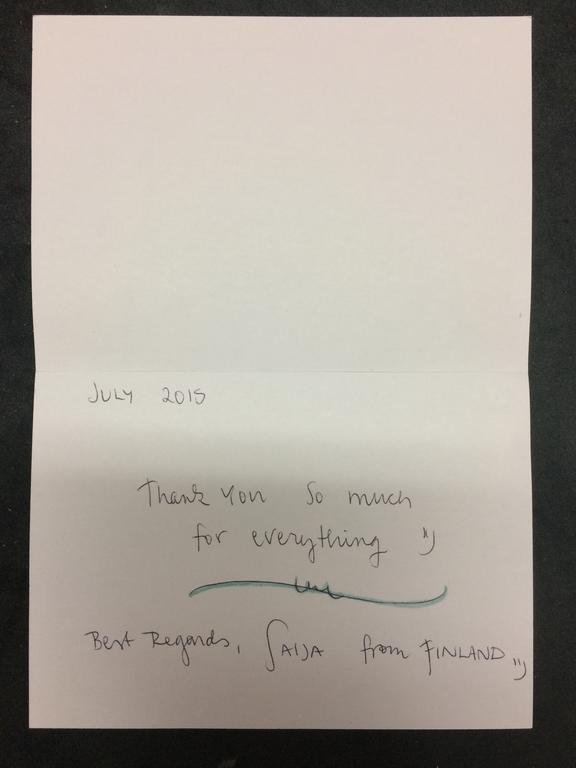 JULY 2015
Thank you so much
for everything :)
Best Regards, SAIJA from FINLAND :)